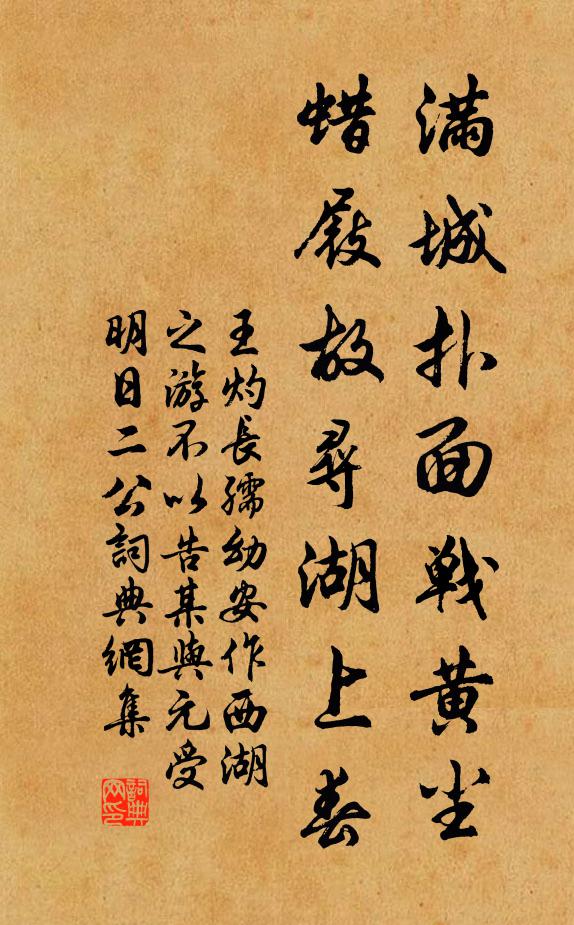 滿城扑面戰黃尘
蜡屐故尋湖上春
王灼長孺幼安作西湖
之游不以告某與元受
明日二公詞典網集
詞典
网印